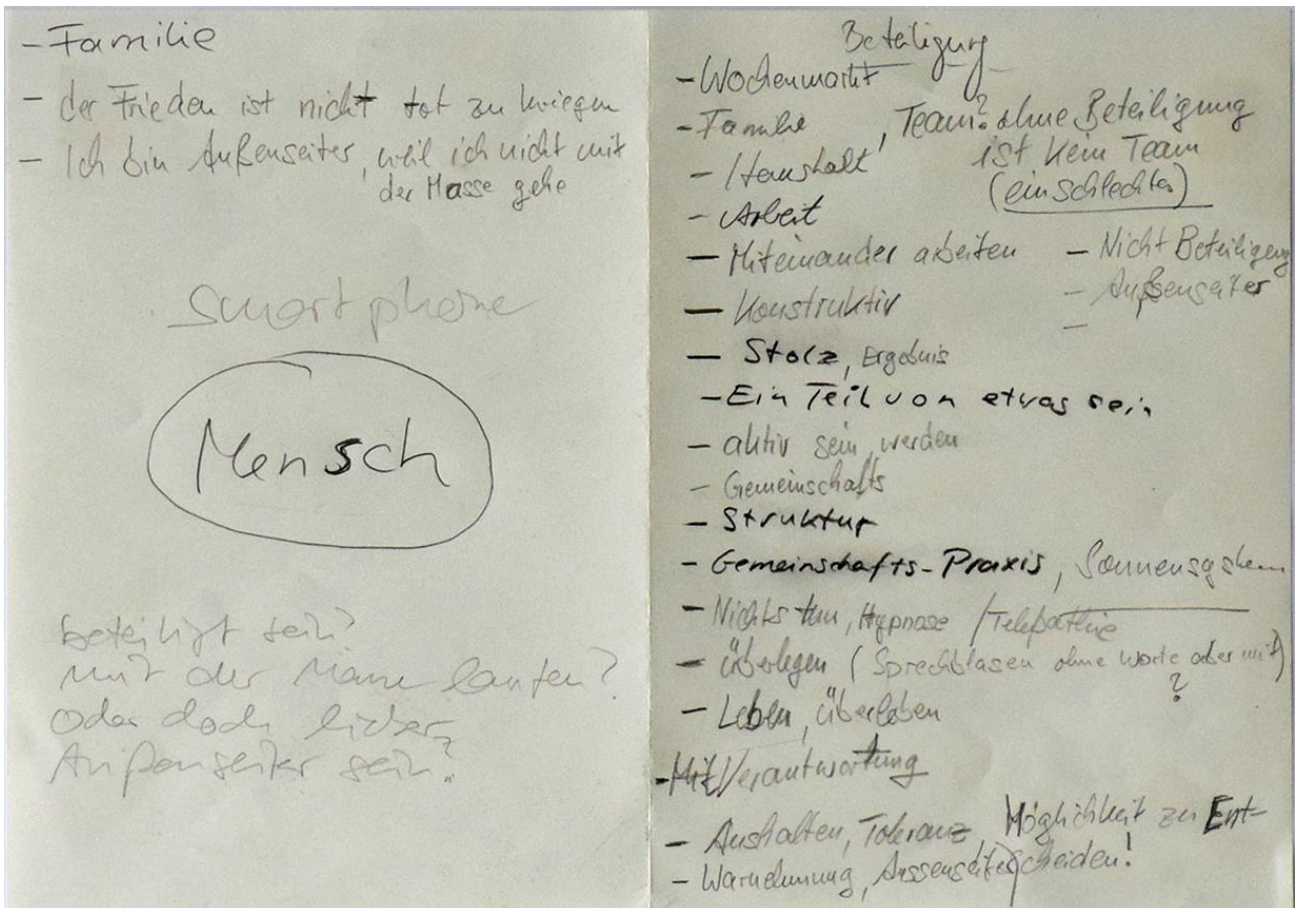 - Familie
- der Frieden ist nicht tot zu kriegen
- Ich bin Außenseiter, weil ich nicht mit
der Masse gehe
Smartphone
Mensch
beteiligt sein?
mit der Masse laufen?
Oder doch lieber
Außenseiter sein?
Beteiligung
- Wochenmarkt
- Familie, Team? ohne Beteiligung
ist kein Team
(ein schlechtes)
- Haushalt
- Arbeit
- Miteinander arbeiten
- Konstruktiv
- Nicht Beteiligung
- Außenseiter
-
- Stolz, Ergebnis
- Ein Teil von etwas sein
- aktiv sein, werden
- Gemeinschafts
- Struktur
- Gemeinschafts-Praxis, Sonnensystem
- Nichts tun, Hypnose / Telepathie
- überlegen (Sprechblasen ohne Worte oder mit)
?
- Leben, überleben
- Mit/Verantwortung
- Aushalten, Toleranz, Möglichkeit zu Ent-
scheiden!
- Warnehmung, Aussenseiter